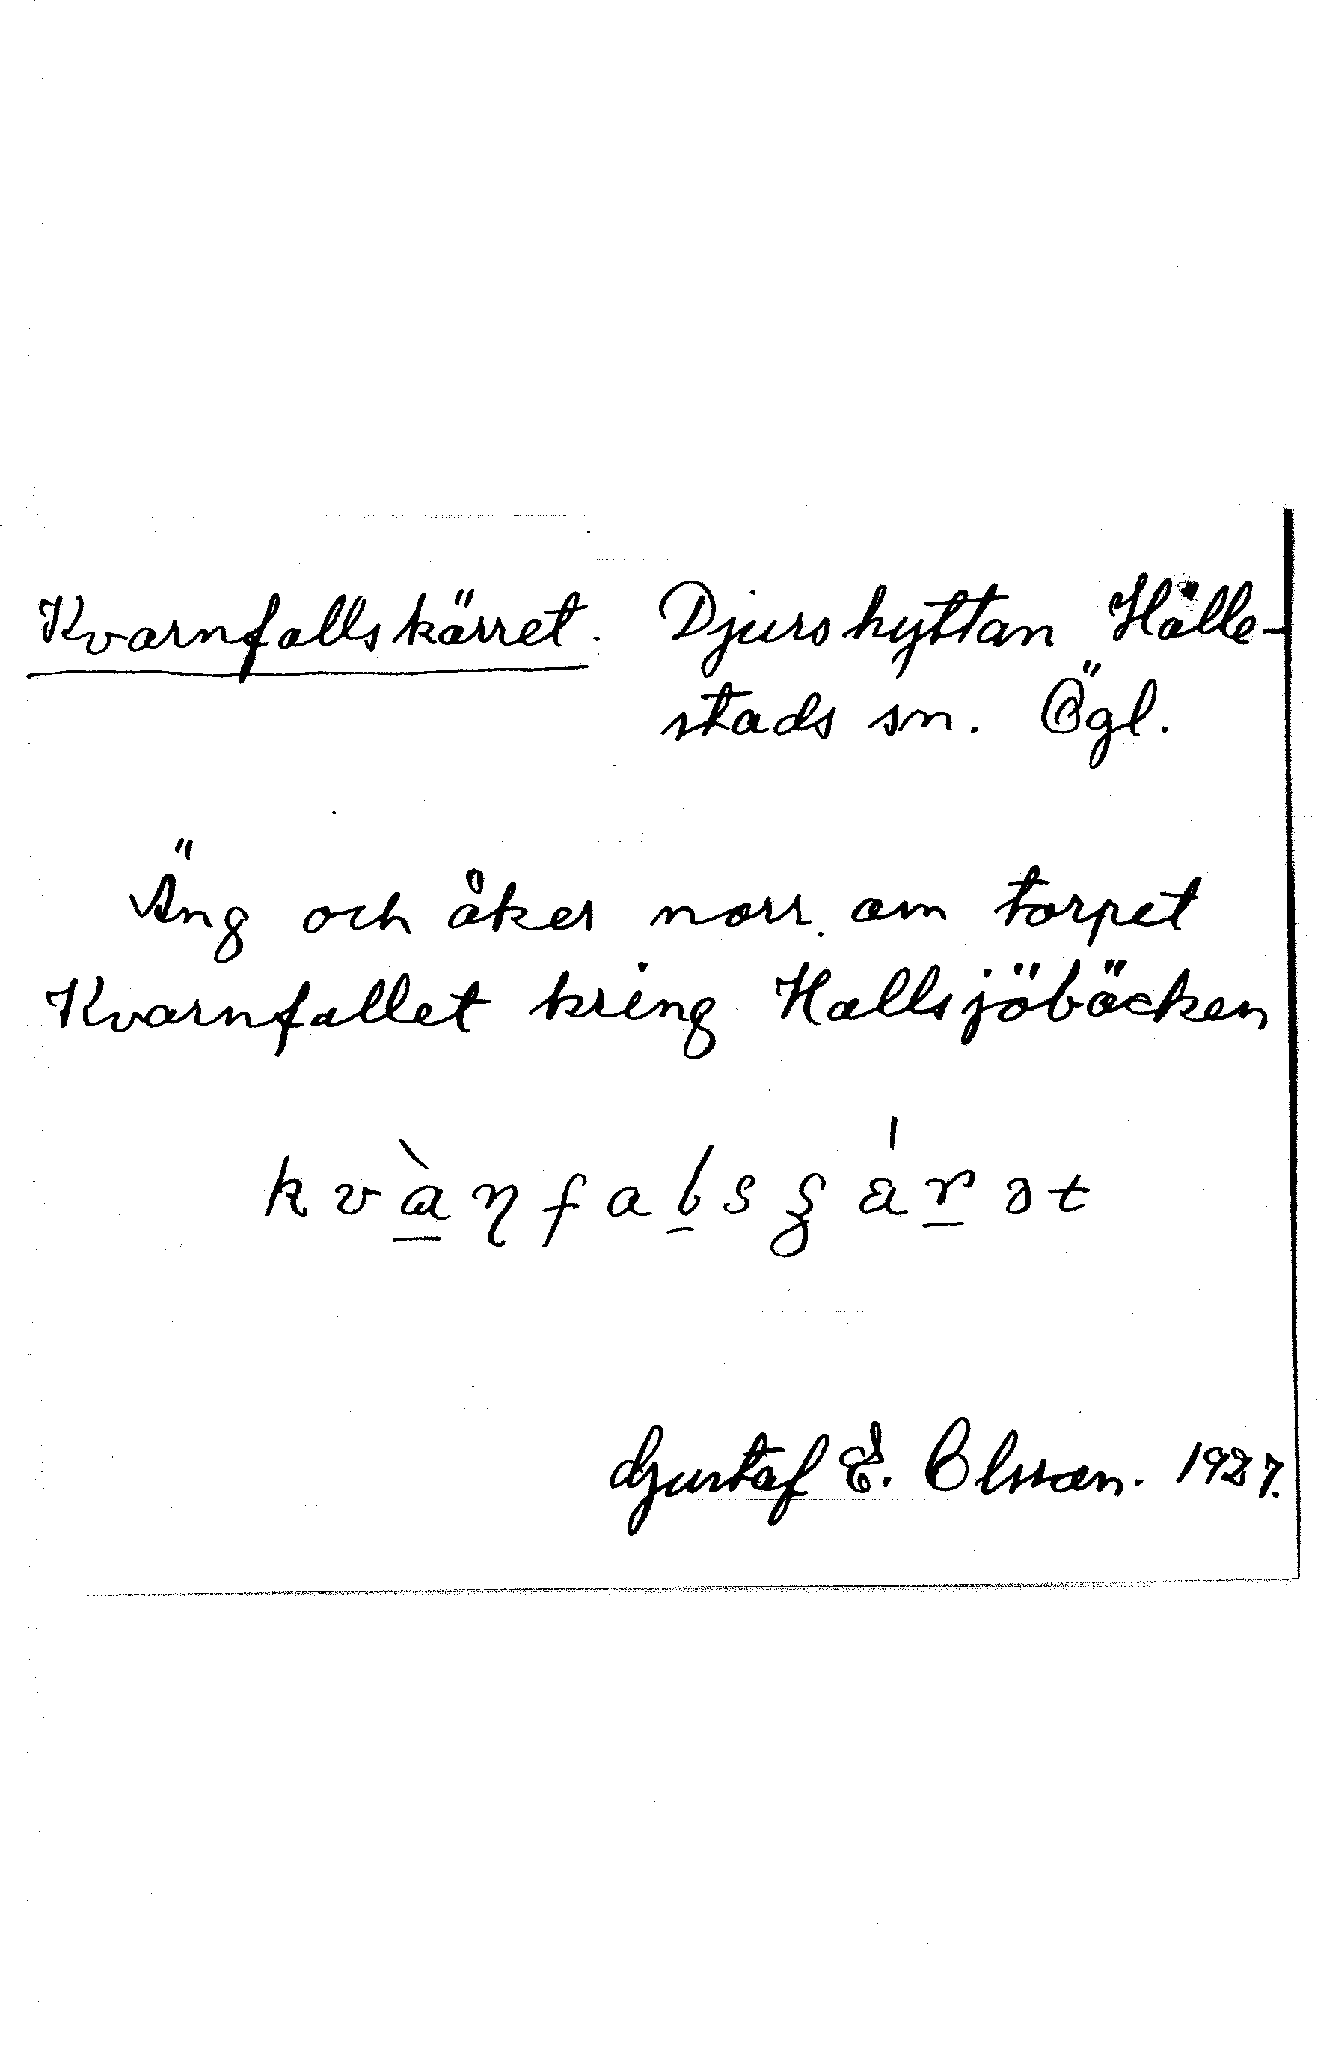 Kvarnfallskärret. Djurshyttan Hälle-
stads sn. Ögl.
Äng och åker norr. om torpet
Kvarnfallet kring Hallsjöbäcken
Gustaf E. Olsson. 1927.